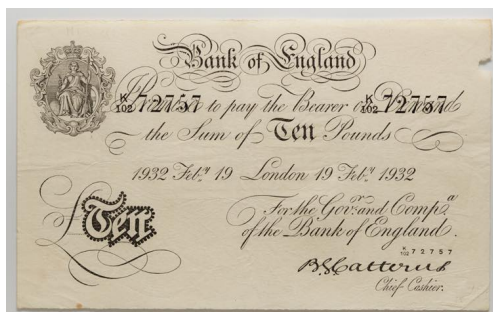 Bank of England
K/102 72757 K/102 72757
Promise to pay the Bearer on Demand
the Sum of Ten Pounds
1932 Feby 19 London 19 Feby 1932
For the Govr and Compa
of the Bank of England.
K/102 72757
£ Ten
B.G. Catterns
Chief Cashier.